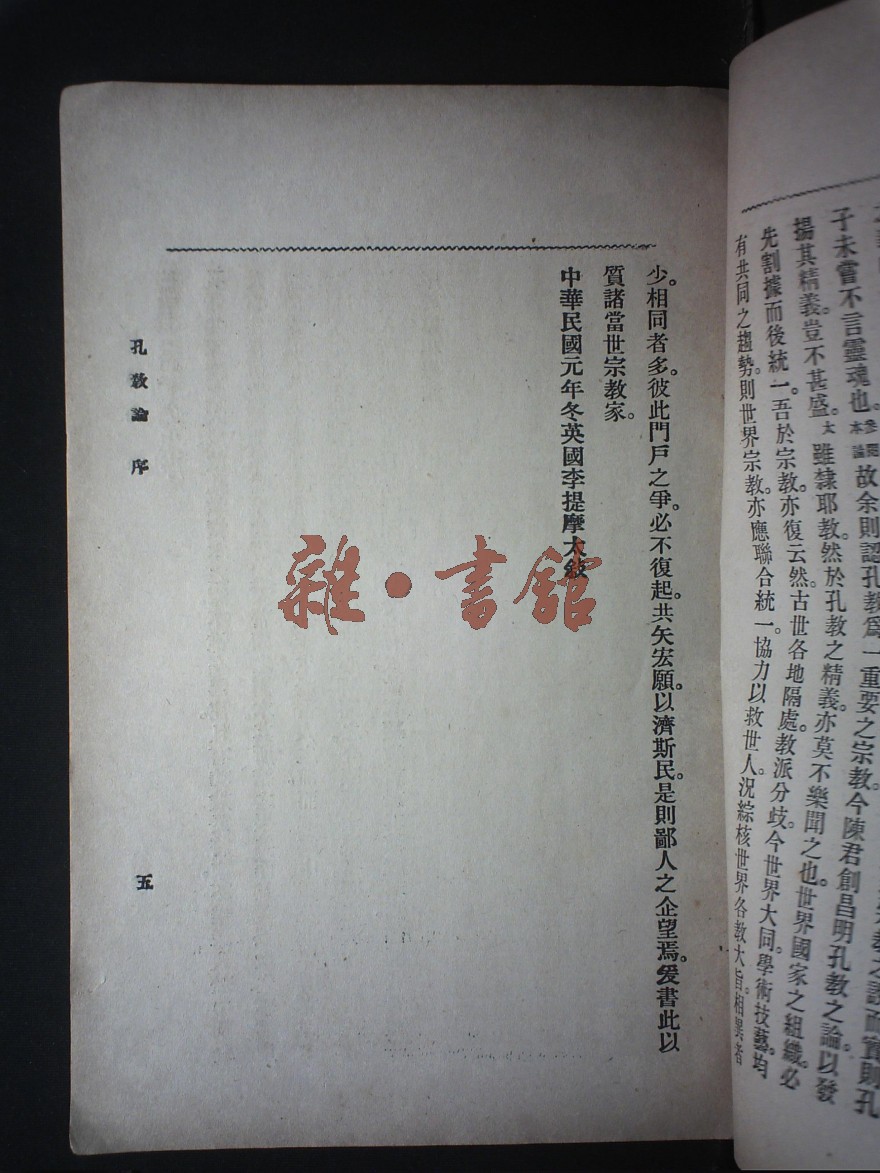 子未嘗不言靈魂也。參閱本論故余則認孔教爲一重要之宗教。今陳君創昌明孔教之論。以發
揚其精義。豈不甚盛。大雖隸耶教。然於孔教之精義。亦莫不樂聞之也。世界國家之組織。必
先割據而後統一。吾於宗教。亦復云然。古世各地隔處。教派分歧。今世界大同。學術技藝。均
有共同之趨勢。則世界宗教。亦應聯合統一。協力以救世人。況綜核世界各教大旨。相異者
少。相同者多。彼此門戶之爭。必不復起。共矢宏願。以濟斯民。是則鄙人之企望焉。爰書此以
質諸當世宗教家。
中華民國元年冬英國李提摩太敍
孔教論 序
五
雜·書館